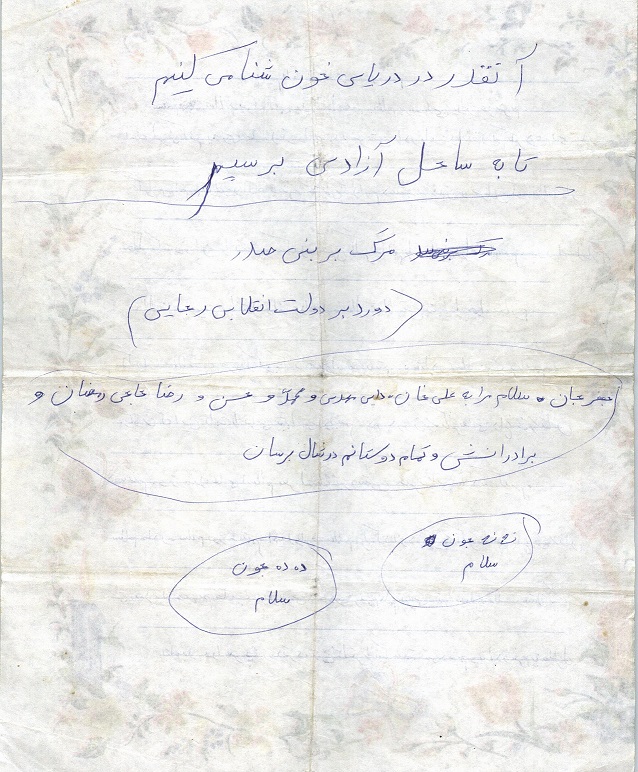 آنقدر در دریای خون شنا می کنیم
تا به ساحل آزادی برسیم
مرگ بر بنی صدر
(دورد بر دولت انقلابی رجایی)
جان سلام مرا به علی خان و مهدی و محمد و حسن و رضا حاجی رمضان و
برادرانش و تمام دوستانم در شال برسان
نه نه جون
سلام
ده ده جون
سلام